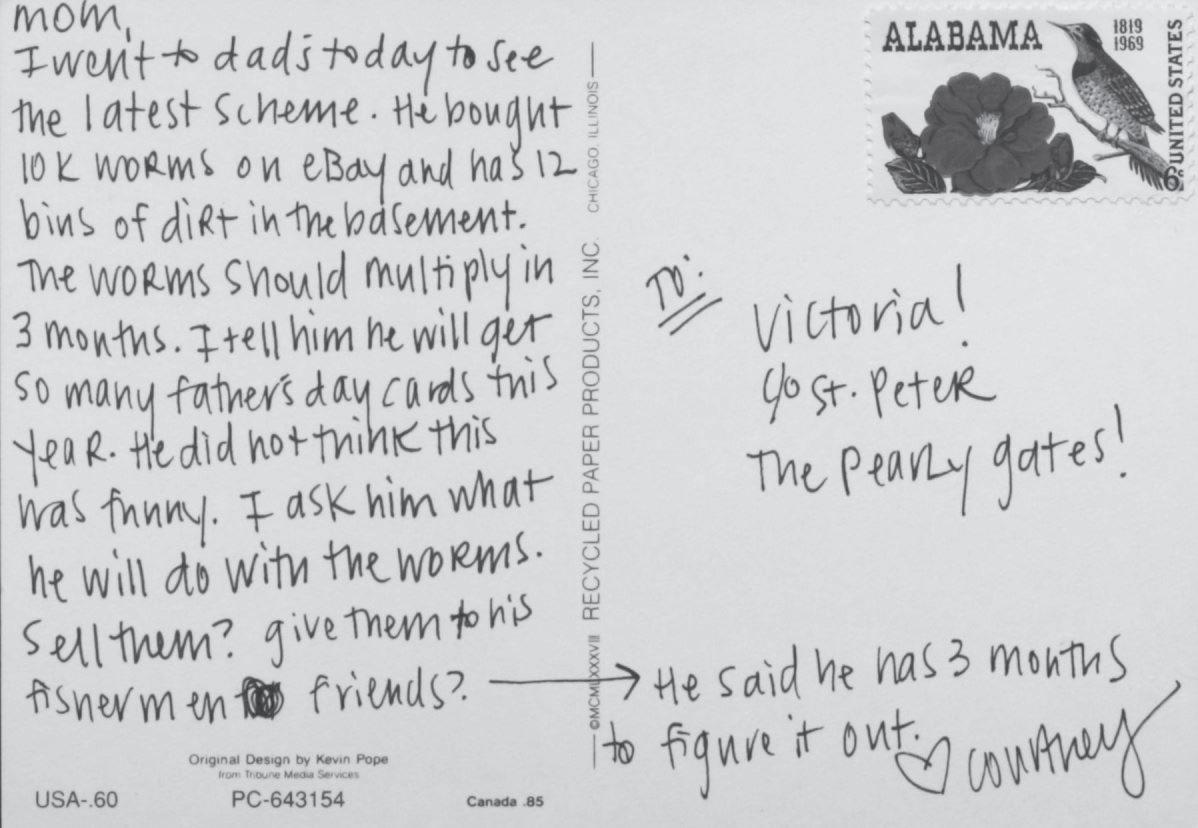 mom,
I went to dad's today to see
the latest scheme. He bought
10K worms on eBay and has 12
bins of dirt in the basement.
The worms should multiply in
3 months. I tell him he will get
so many father's day cards this
year. He did not think this
was funny. I ask him what
he will do with the worms.
Sell them? give them to his
fishermen friends?
He said he has 3 months
to figure it out.
♡ Courtney
To:
Victoria!
c/o St. Peter
The Pearly gates!
ALABAMA
1819
1969
UNITED STATES
6c
©MCMLXXXVIII RECYCLED PAPER PRODUCTS, INC. CHICAGO, ILLINOIS
Original Design by Kevin Pope
from Tribune Media Services
USA-.60
PC-643154
Canada .85